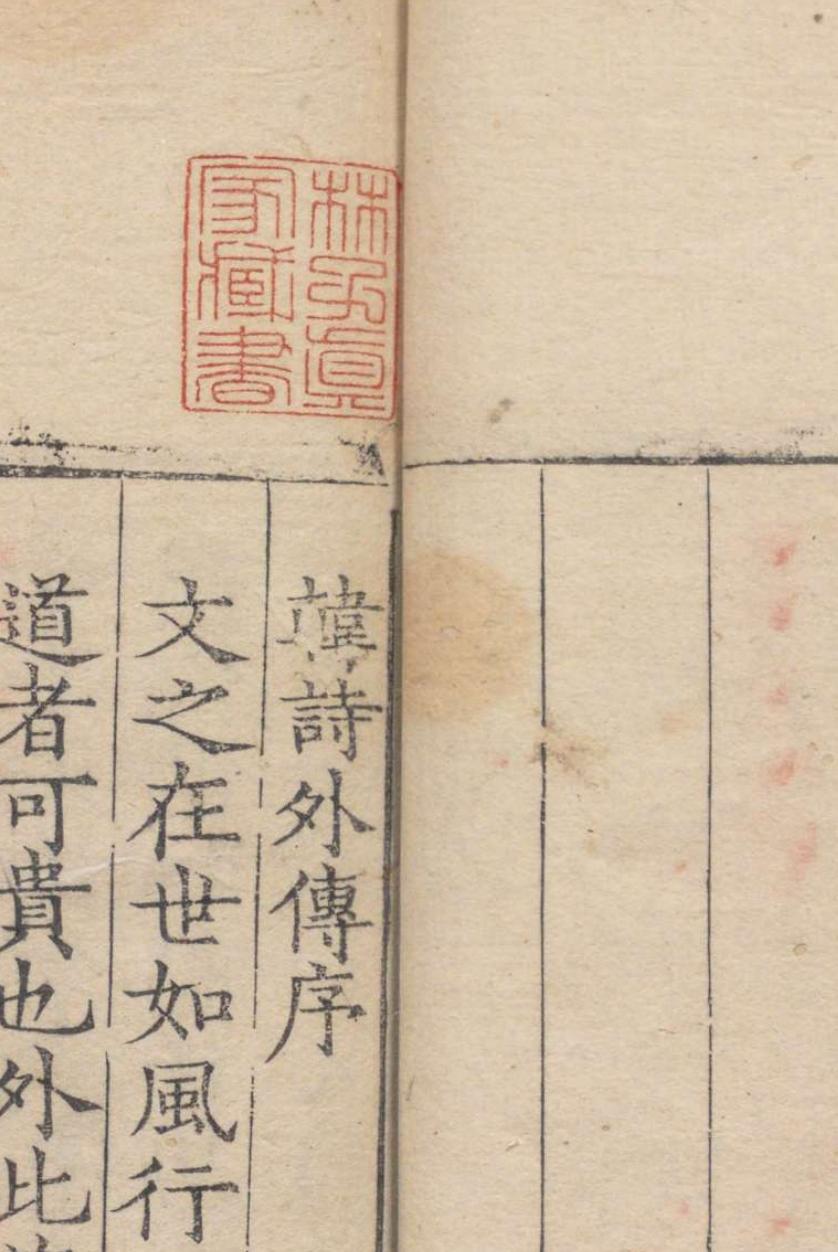 林眞
家藏書
韓詩外傳序
文之在世如風行
道者可貴也外此